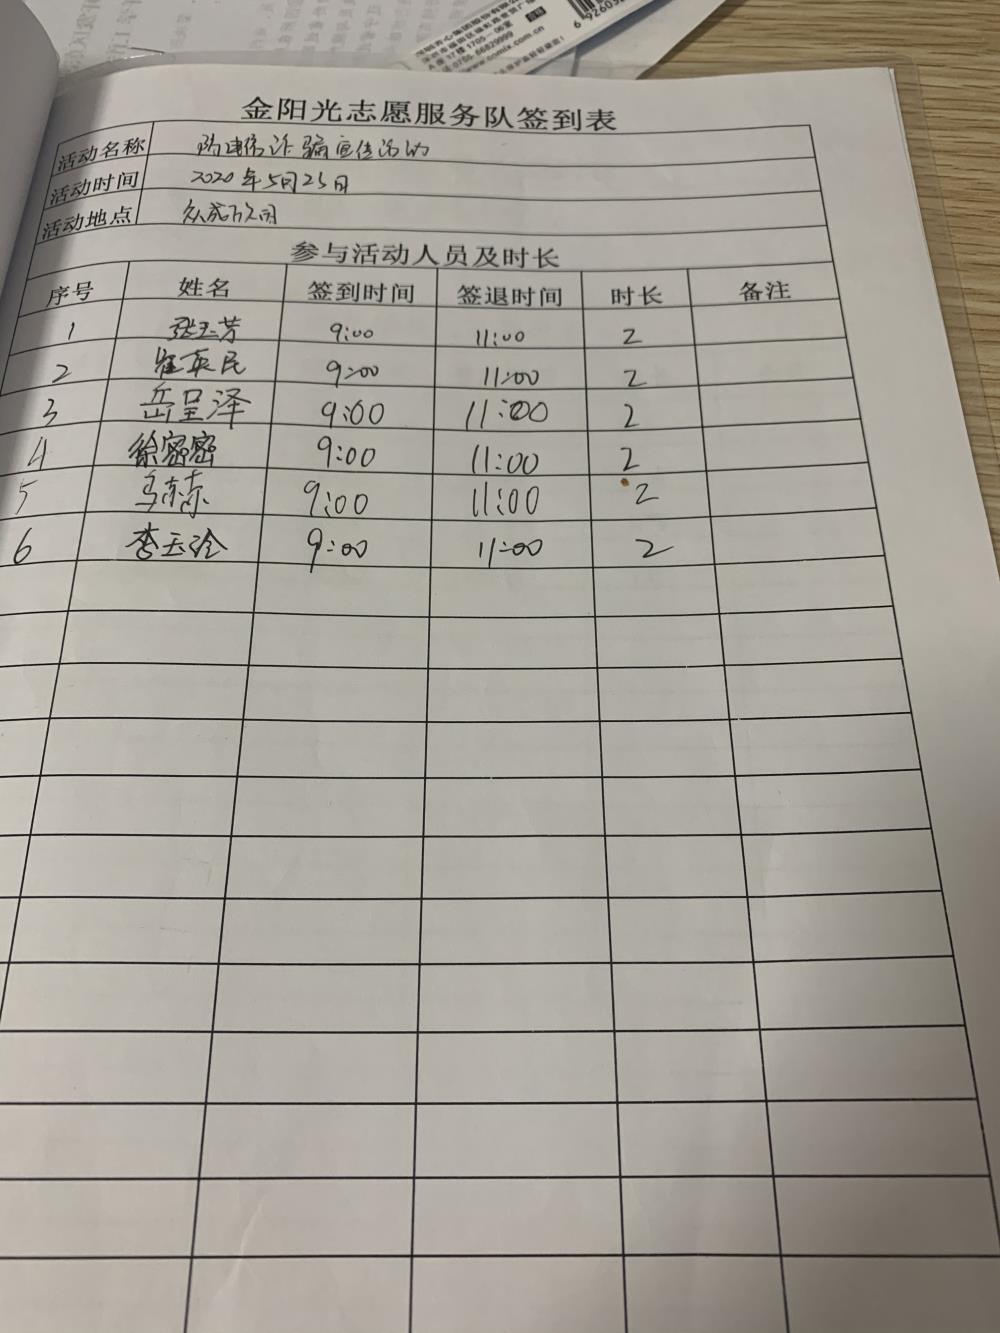 A座17楼1705-06室
电话:0755-66829999
www.comix.com.cn
金阳光志愿服务队签到表
活动名称 防电信诈骗宣传活动
活动时间 2020年5月25日
活动地点
参与活动人员及时长
序号 姓名 签到时间 签退时间 时长 备注
1 张玉芳 9:00 11:00 2
2 崔英民 9:00 11:00 2
3 岳呈泽 9:00 11:00 2
4 徐密密 9:00 11:00 2
5 9:00 11:00 2
6 李玉玲 9:00 11:00 2